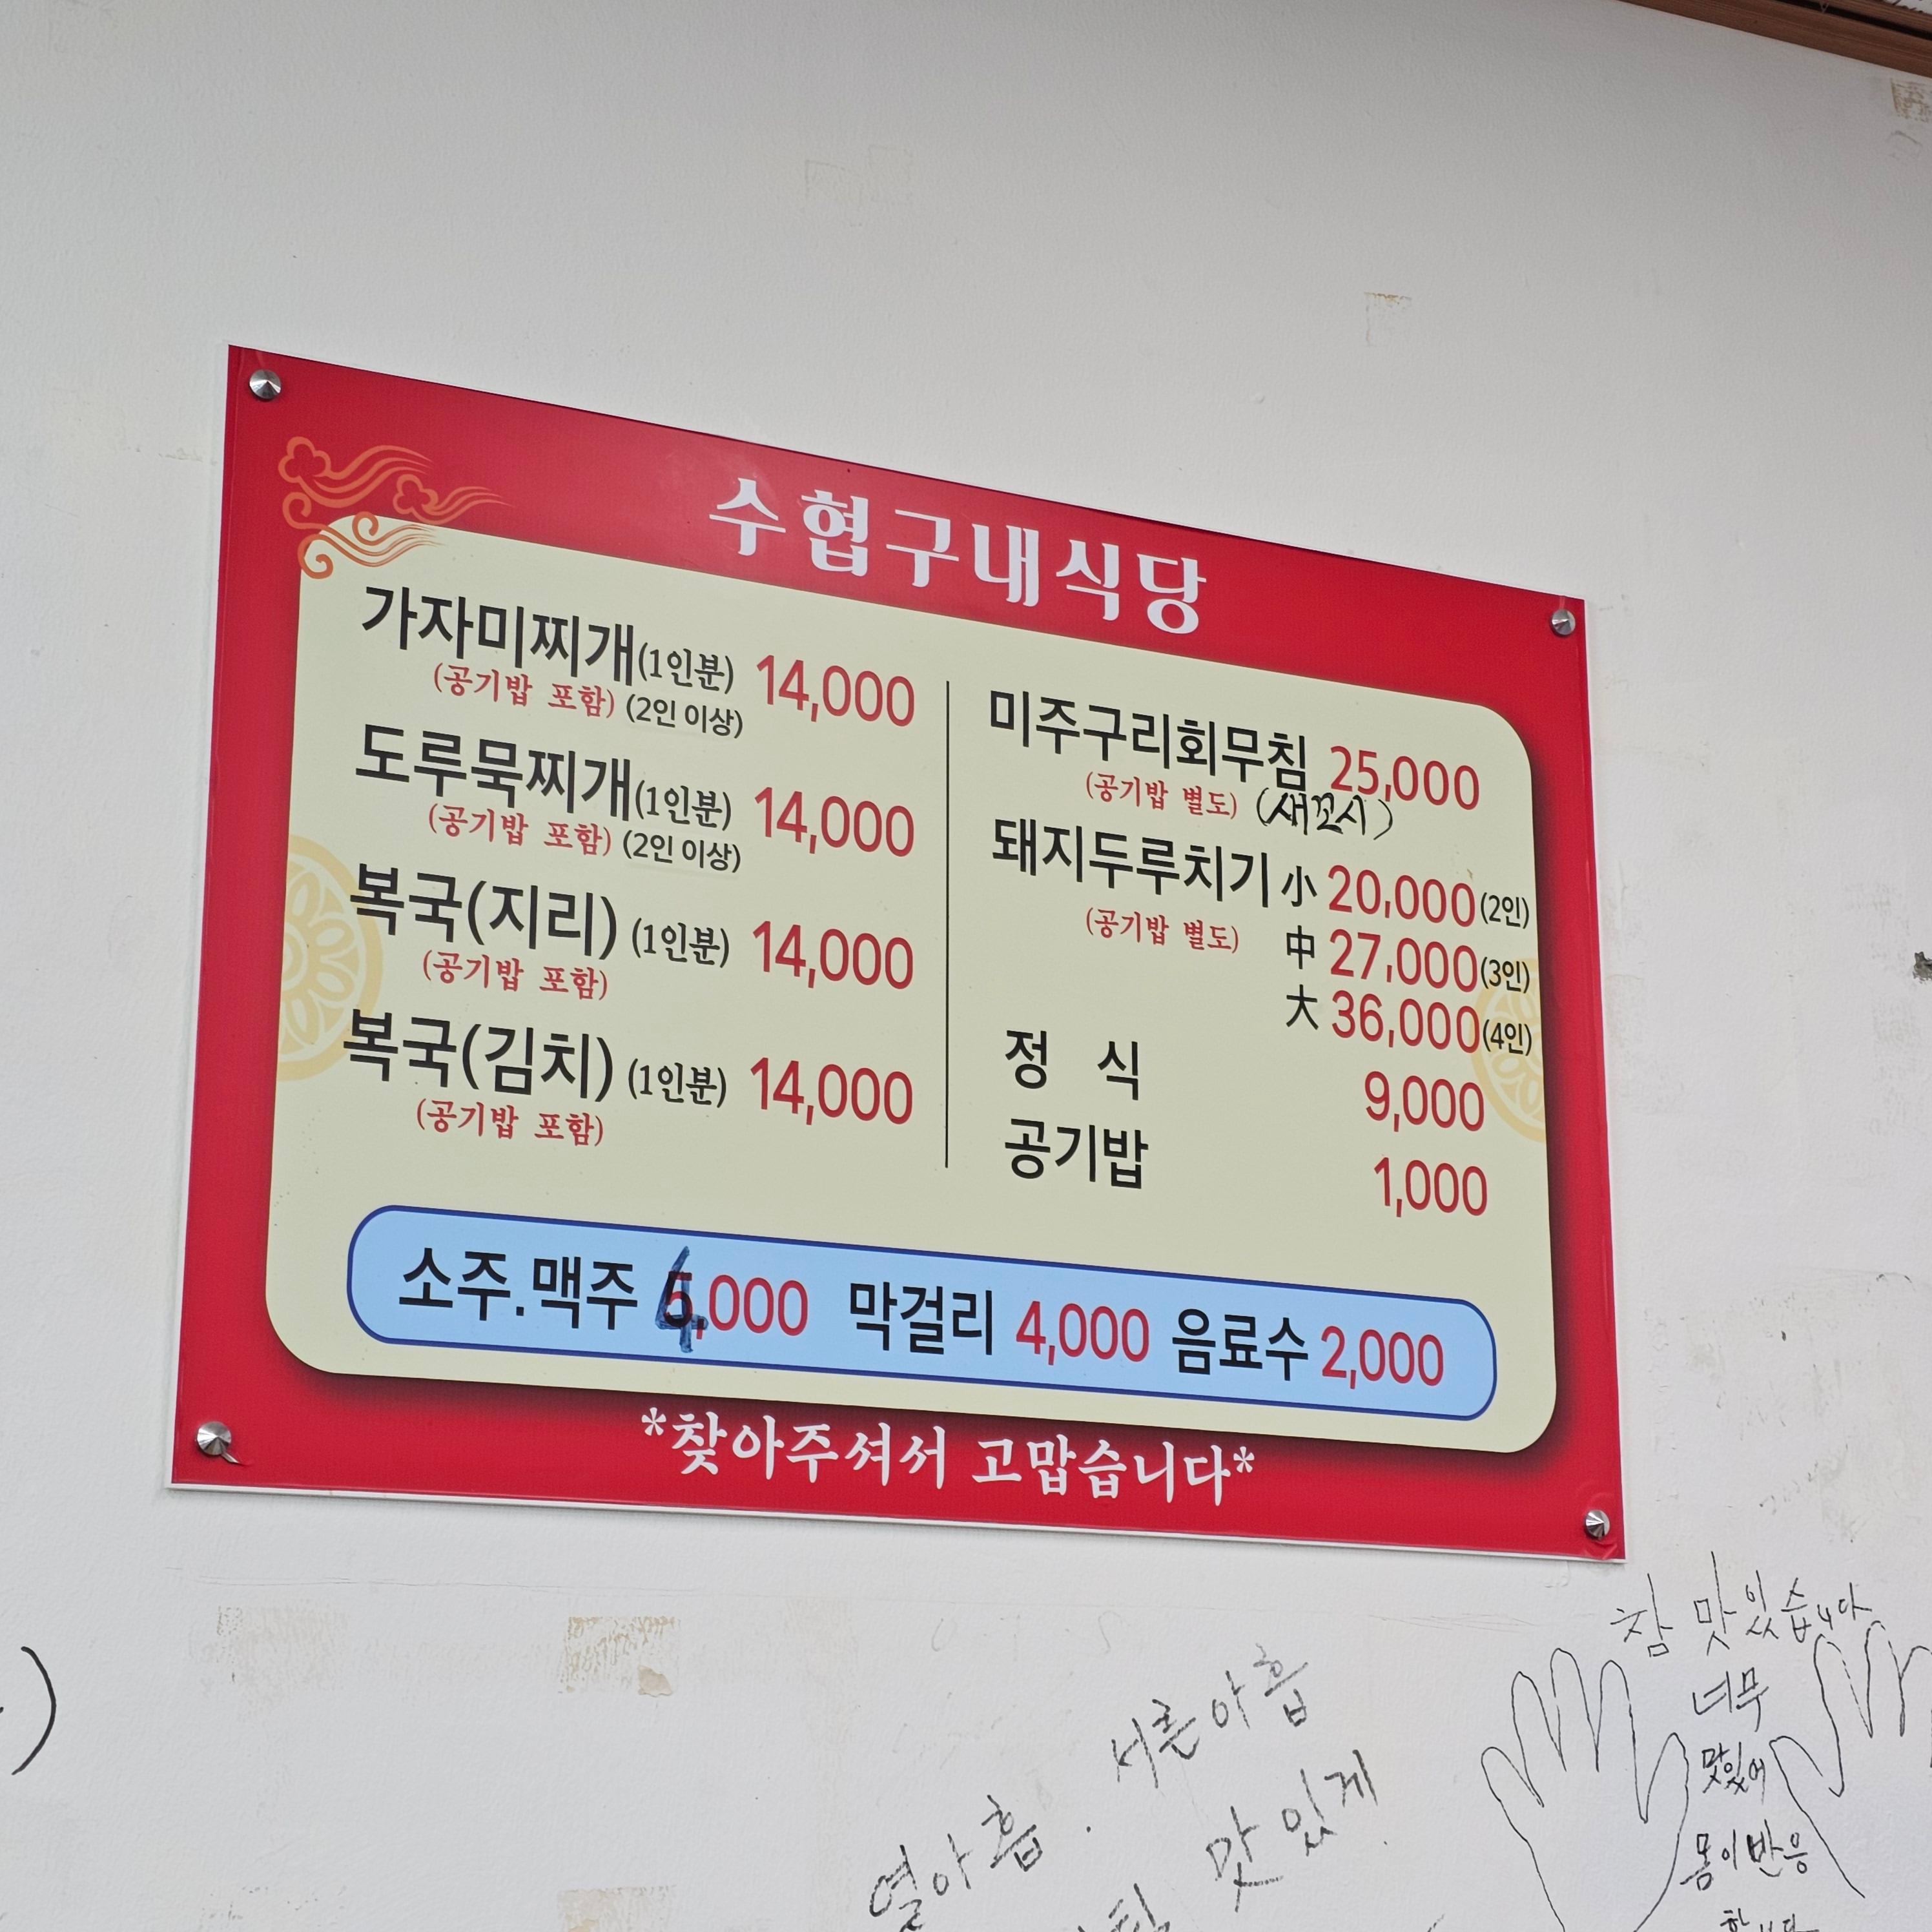 수협구내식당
가자미찌개(1인분) 14,000
(공기밥 포함) (2인 이상)
도루묵찌개(1인분) 14,000
(공기밥 포함) (2인 이상)
복국(지리) (1인분) 14,000
(공기밥 포함)
복국(김치) (1인분) 14,000
(공기밥 포함)
미주구리회무침 25,000
(공기밥 별도) (새꼬시)
돼지두루치기 小 20,000(2인)
(공기밥 별도) 中 27,000(3인)
大 36,000(4인)
정 식 9,000
공기밥 1,000
소주.맥주 4,000 막걸리 4,000 음료수 2,000
*찾아주셔서 고맙습니다*
참 맛있습니다
너무
맛있어
몸이 반응
서른아홉
열아홉.
맛있게